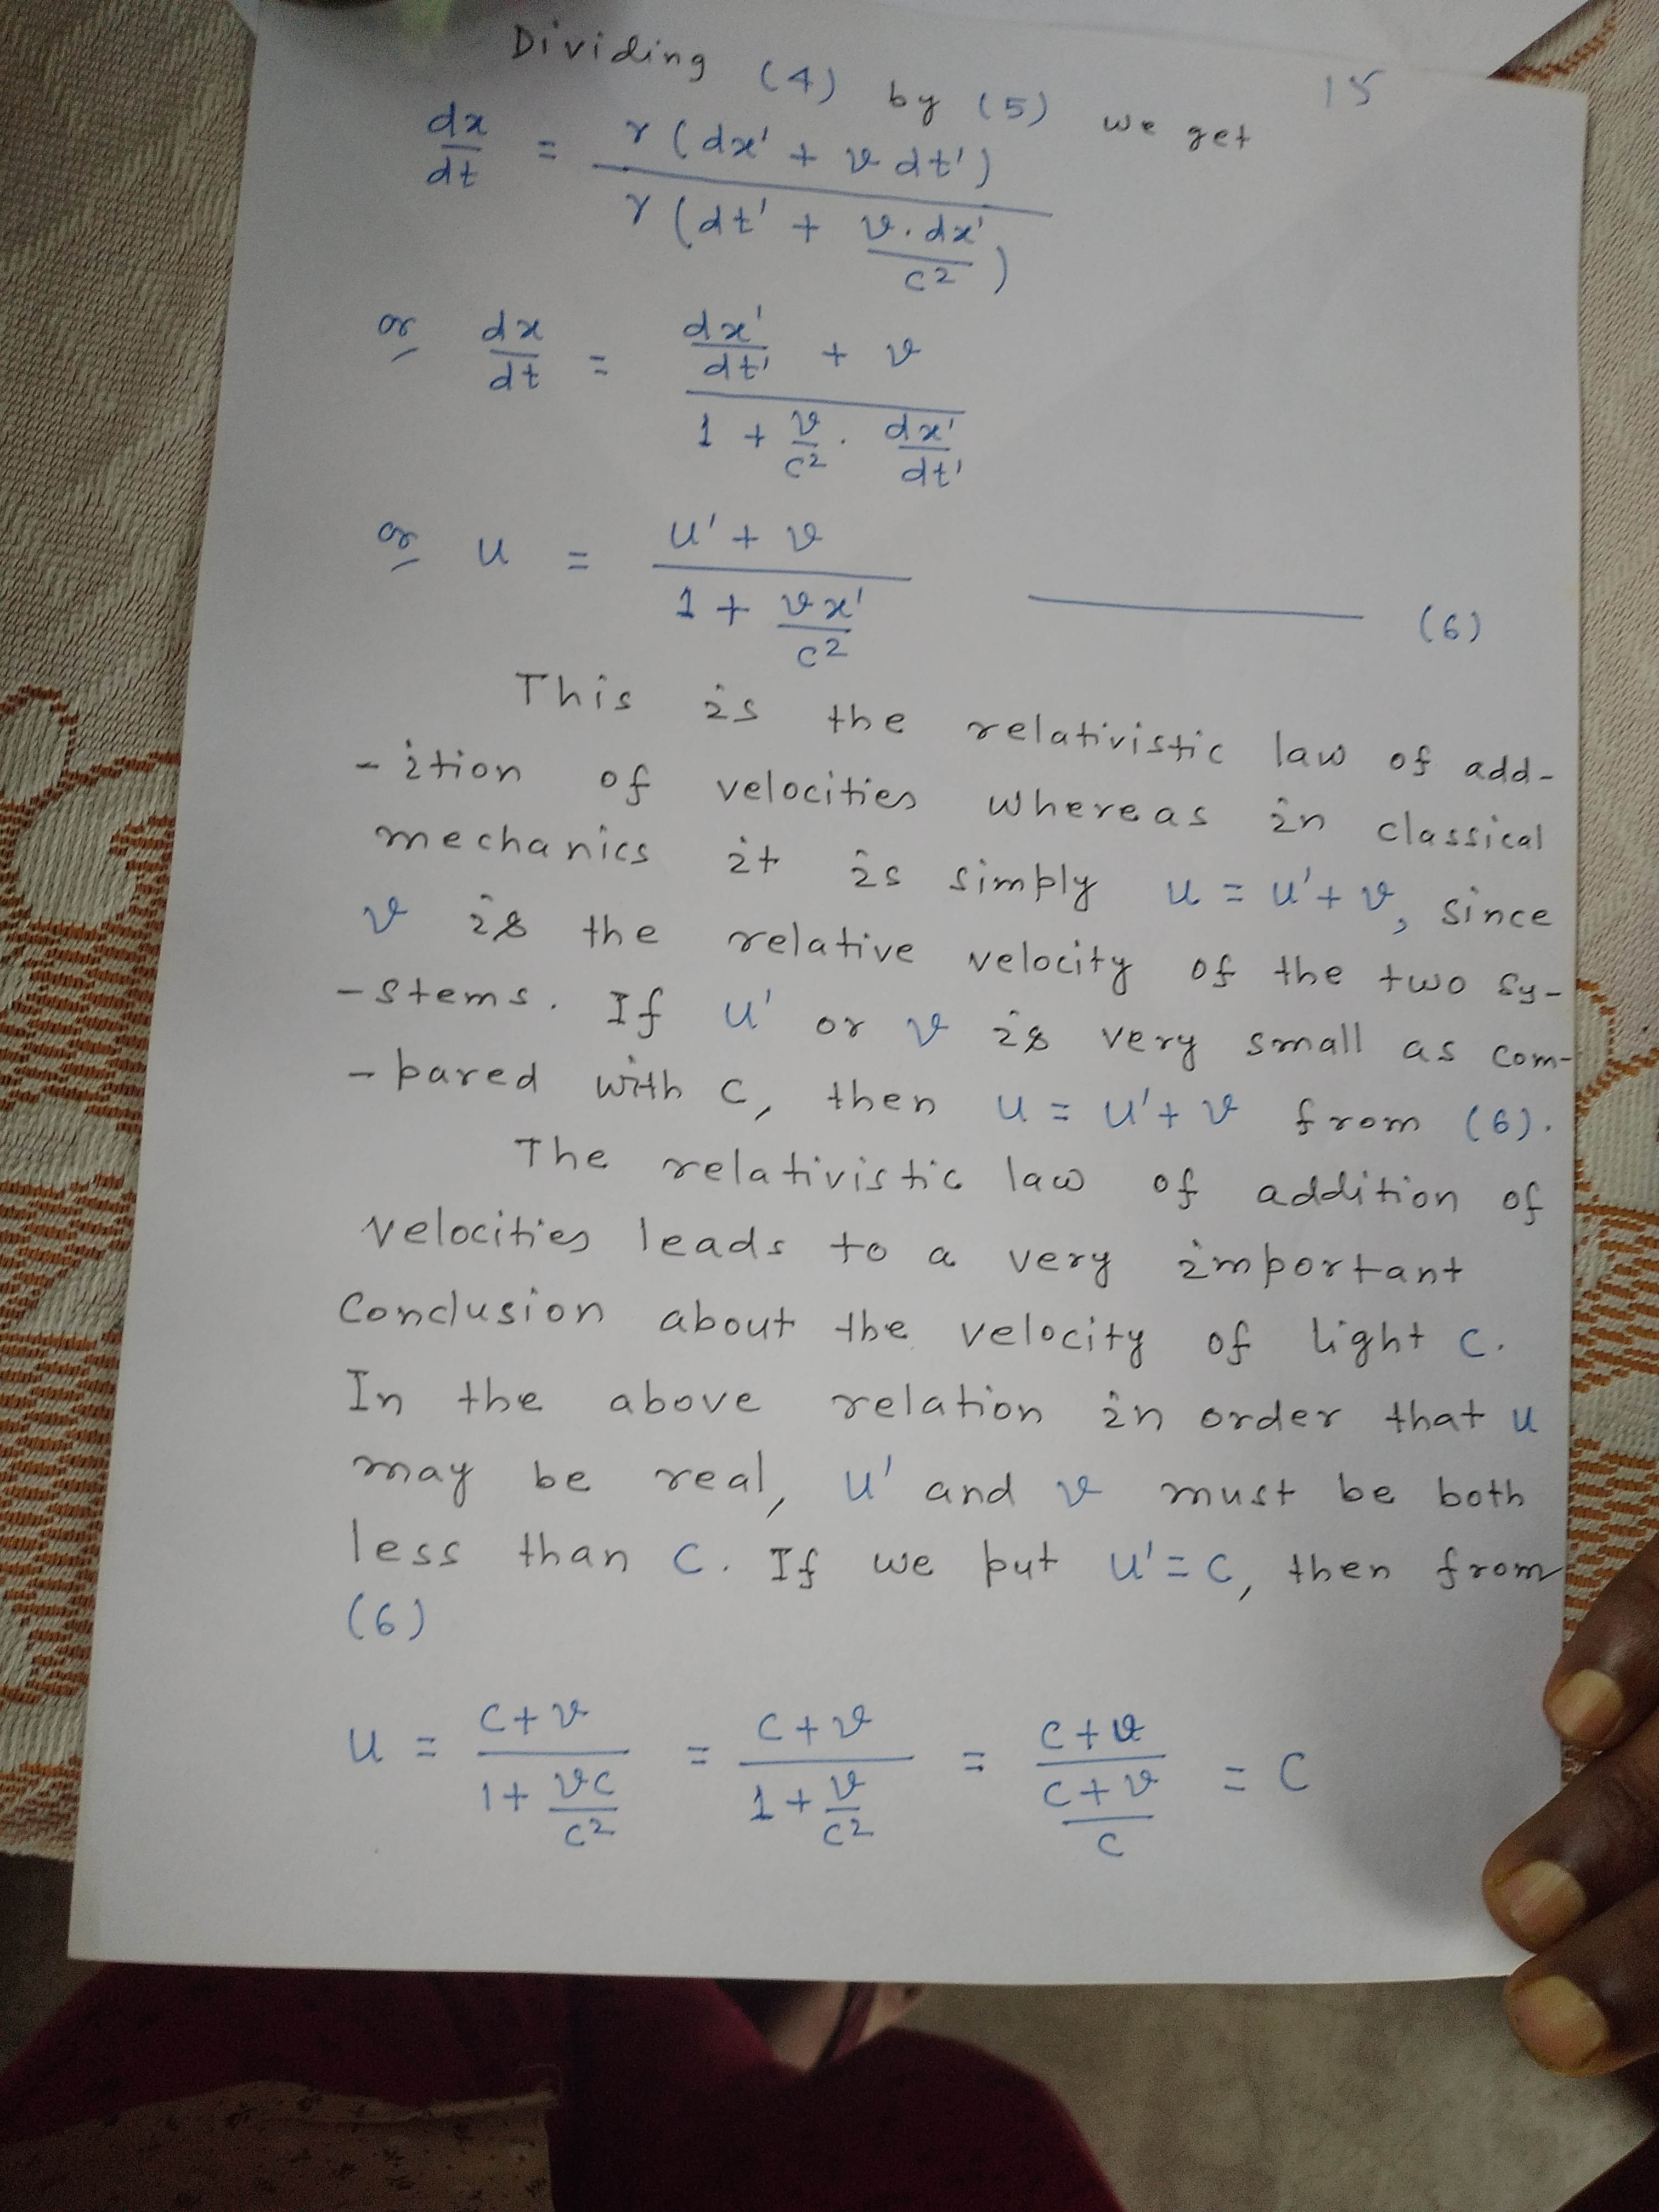 15
Dividing (4) by (5) we get
dx/dt = γ(dx' + v dt') / γ(dt' + v.dx'/c²)
or dx/dt = (dx'/dt' + v) / (1 + v/c² . dx'/dt')
or u = (u' + v) / (1 + vx'/c²) ——— (6)
This is the relativistic law of add-
-ition of velocities whereas in classical
mechanics it is simply u = u' + v, since
v is the relative velocity of the two sy-
-stems. If u' or v is very small as com-
-pared with c, then u = u' + v from (6).
The relativistic law of addition of
velocities leads to a very important
Conclusion about the velocity of light c.
In the above relation in order that u
may be real, u' and v must be both
less than c. If we put u' = c, then from
(6)
u = (c+v) / (1 + vc/c²) = (c+v) / (1 + v/c²) = (c+v) / ((c+v)/c) = c